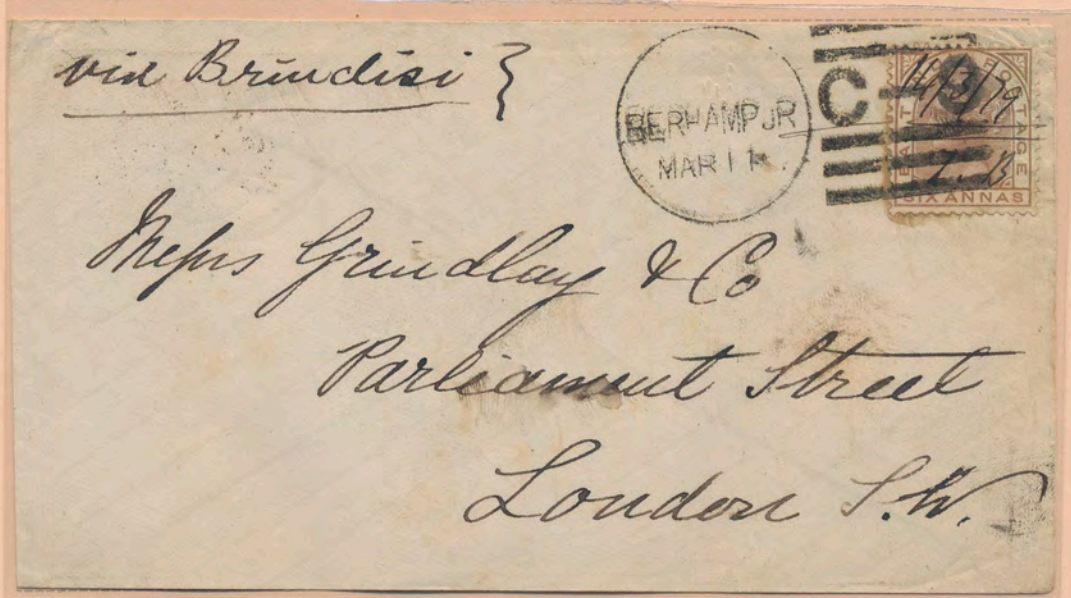 via Brindisi
BERHAMPUR
MAR 11
C
14/3/79
EAST POSTAGE
SIX ANNAS
Messrs Grindlay & Co
Parliament Street
London S.W.